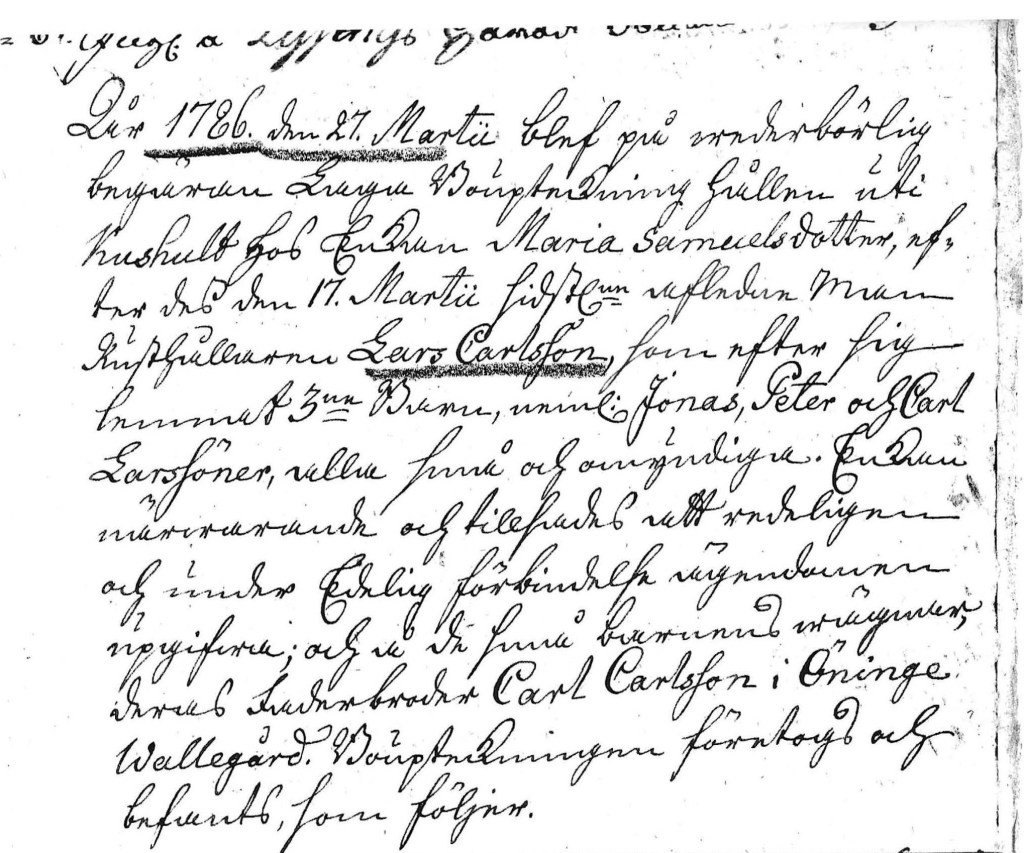 a
Åhr 1786. den 27. Martii blef på wederbörlig
begäran Laga Bouptekning hållen uti
hos Enkan Maria Samuelsdotter, ef-
ter des den 17. Martii sidstl:nne aflidne Man
Rusthållaren Lars Carlsson, som efter sig
lemnat 3:ne Barn, neml: Jonas, Peter och Carl
Larssöner, alla små och omyndiga. Enkan
närwarande och tillsades att redeligen
och under Edelig förbindelse ägendomen
upgifwa; och å de små barnens wägnar,
deras Faderbroder Carl Carlsson i Öninge
Wallegård. Bouptekningen företogs och
befants, som följer.